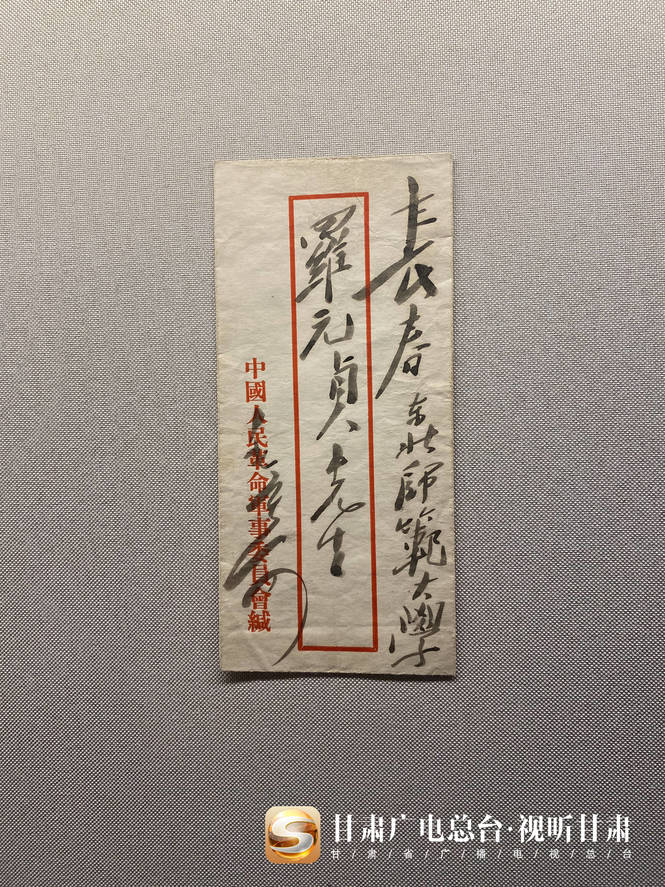 長春东北師範大學
羅元貞先生
中國人民革命軍事委員會緘
甘肃广电总台·视听甘肃
甘/肃/省/广/播/电/视/总/台